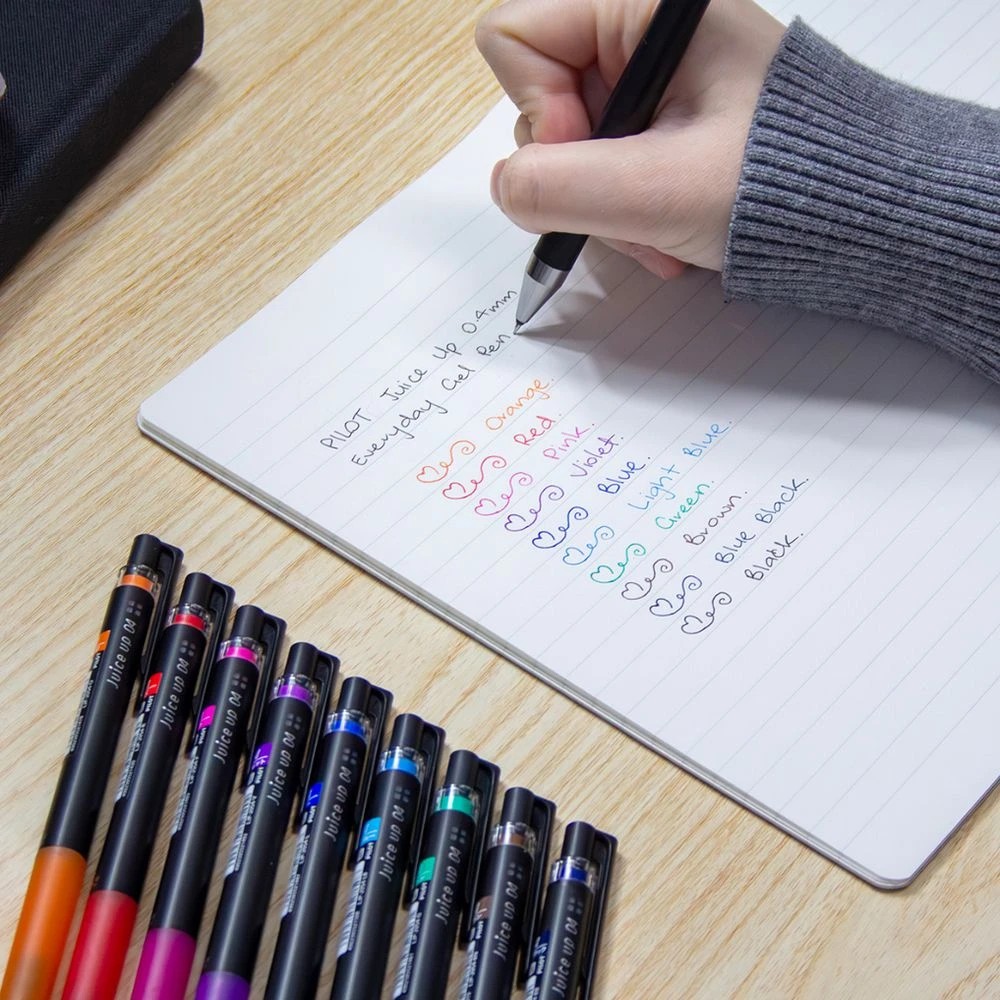 PILOT Juice Up 0.4mm
Everyday Gel Pen
Orange.
Red.
Pink.
Violet.
Blue.
Light Blue.
Green.
Brown.
Blue Black.
Black.
Juice up 04
PILOT
Juice up 04
PILOT
Juice up 04
PILOT
Juice up 04
PILOT
Juice up 04
PILOT
Juice up 04
PILOT
Juice up 04
Juice up 04
PILOT
Juice up 04